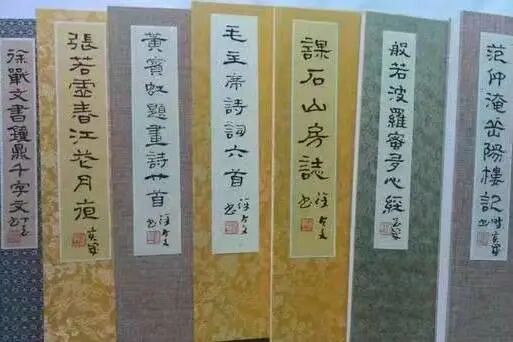 文書鐘鼎千字文
張若虛春江花月夜
黃賓虹題畫詩廿首
毛主席詩詞六首
課石山房誌
般若波羅蜜多心經
范仲淹岳陽樓記